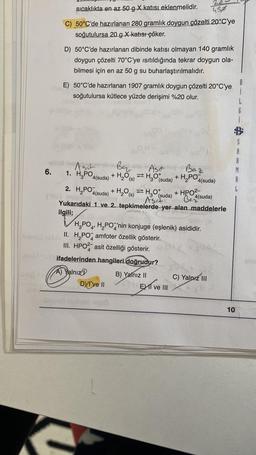 sıcaklıkta en az 50 g X katısı eklenmelidir.
C) 50°C'de hazırlanan 280 gramlık doygun çözelti 20°C'ye
soğutulursa 20 g X katısı çöker.
D) 50°C'de hazırlanan dibinde katısı olmayan 140 gramlık
doygun çözelti 70°C'ye ısıtıldığında tekrar doygun ola-
bilmesi için en az 50 g su buharlaştırılmalıdır.
E) 50°C'de hazırlanan 1907 gramlık doygun çözelti 20°C'ye
soğutulursa kütlece yüzde derişimi %20 olur.
Asit Baz Asit Baz
6. 1. H₃PO₄(suda) + H₂O(s) ⇌ H₃O⁺(suda) + H₂PO₄⁻(suda)
2. H₂PO₄⁻(suda) + H₂O(s) ⇌ H₃O⁺(suda) + HPO₄²⁻(suda)
Asit Baz
Yukarıdaki 1 ve 2. tepkimelerde yer alan maddelerle
ilgili;
I. H₃PO₄, H₂PO₄⁻'nin konjuge (eşlenik) asididir.
II. H₂PO₄⁻ amfoter özellik gösterir.
III. HPO₄²⁻ asit özelliği gösterir.
ifadelerinden hangileri doğrudur?
A) Yalnız I B) Yalnız II C) Yalnız III
D) I ve II E) II ve III
10